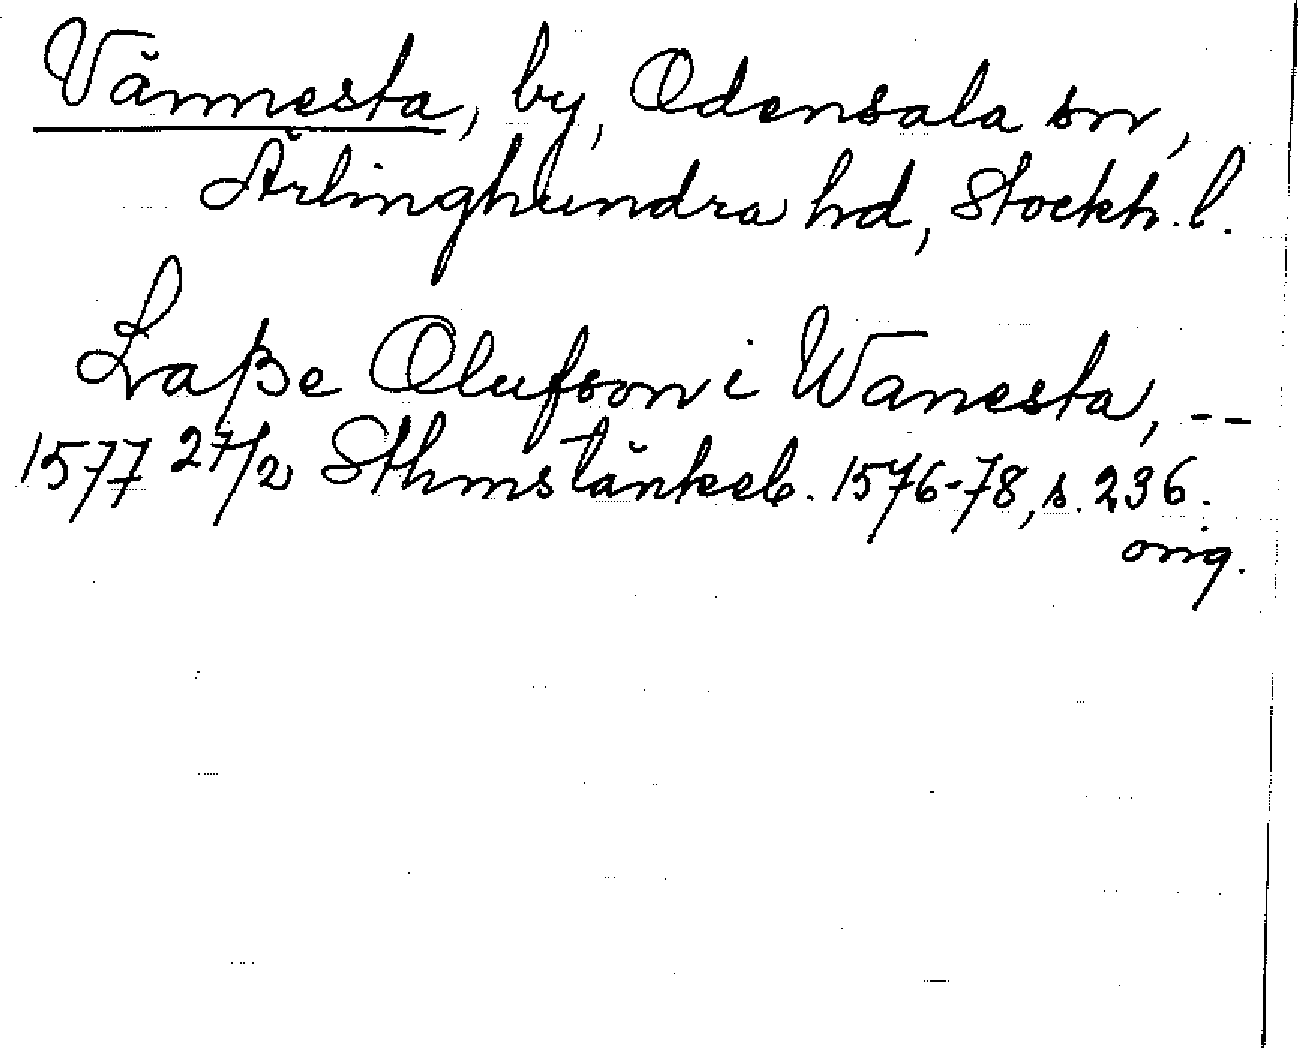 Vännesta, by, Odensala sn,
Ärlinghundra hd, Stockh. l.
Laße Olufson i Wanesta, --
1577 27/2 Sthms tänkeb. 1576-78, s. 236.
orig.